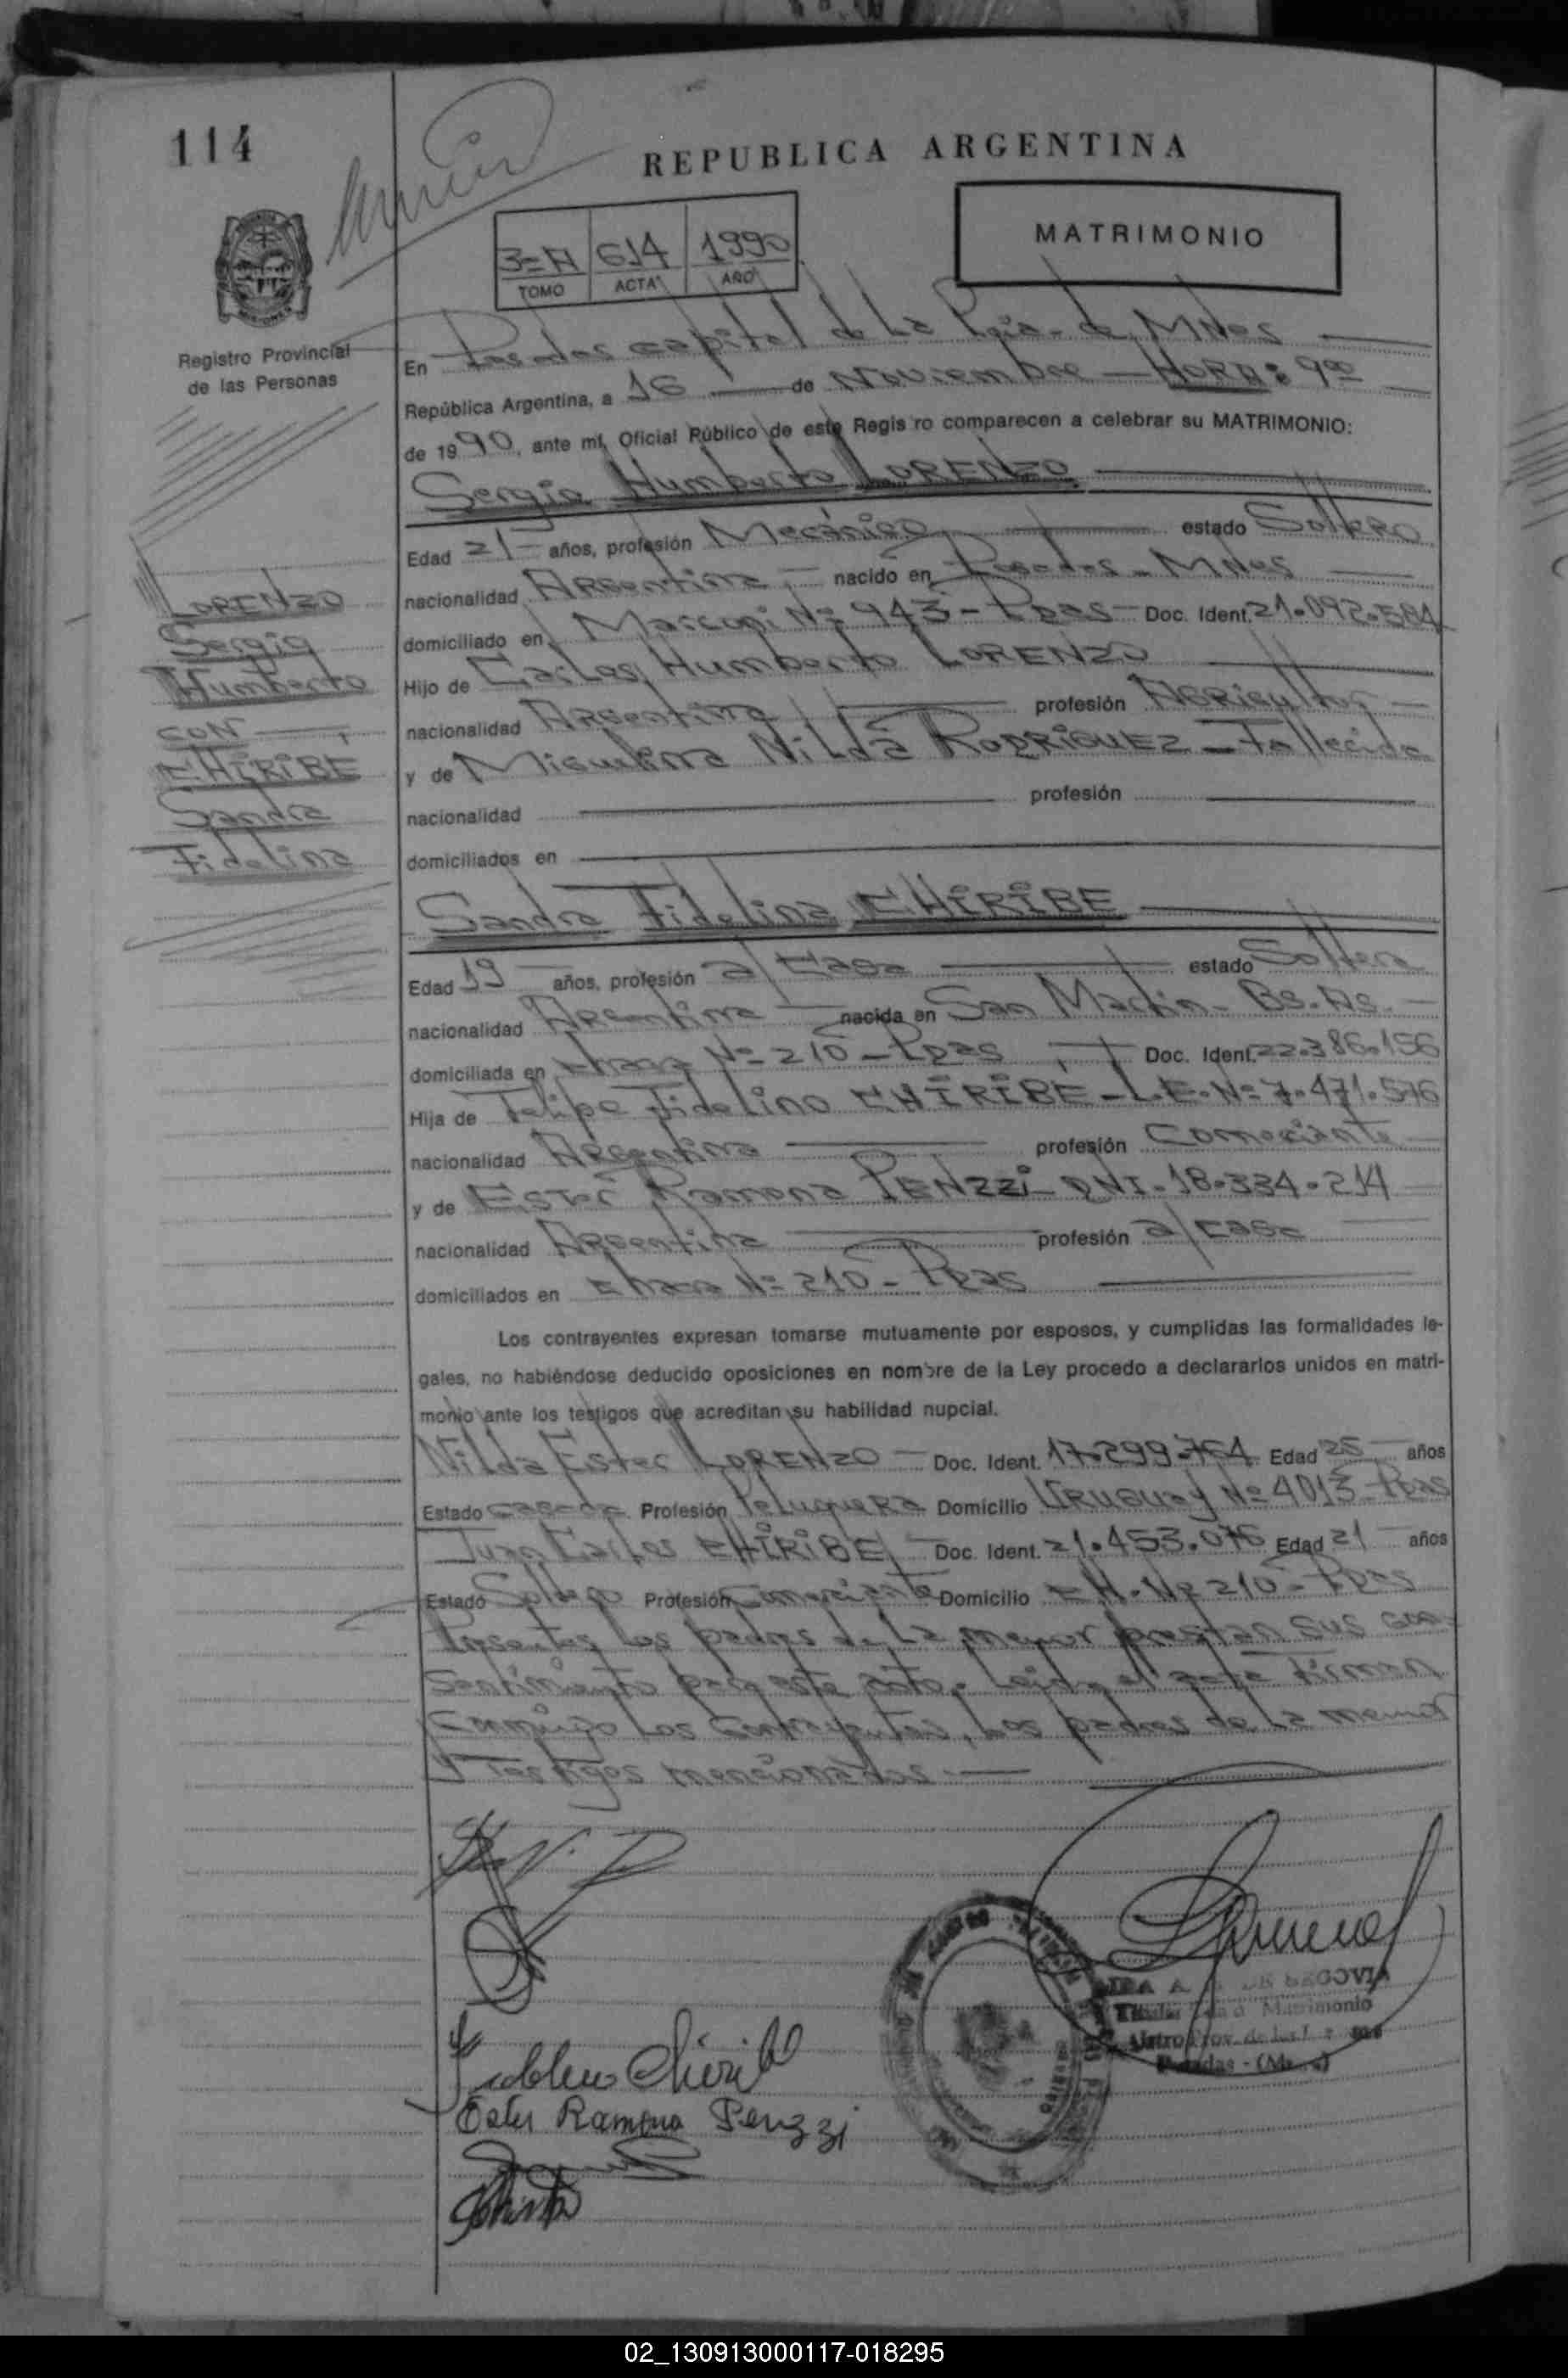 114
REPUBLICA ARGENTINA
MATRIMONIO
3=A 614 1990
TOMO ACTA AÑO
Registro Provincial
de las Personas
En Posadas capital de La Pcia. de Mnes
República Argentina, a 16 de Noviembre - HORA: 9°°
de 1990, ante mí, Oficial Público de este Regis ro comparecen a celebrar su MATRIMONIO:
Sergio Humberto LORENZO
Edad 21 - años, profesión Mecánico estado Soltero
nacionalidad Argentina - nacido en Posadas - Mnes
domiciliado en Marconi N= 943 - Pdas - Doc. Ident. 21.092.584
Hijo de Carlos Humberto LORENZO
nacionalidad Argentina profesión Agricultor
y de Miguelina Nilda RODRIGUEZ - Fallecida
nacionalidad profesión
domiciliados en
LORENZO
Sergio
Humberto
CON
CHIRIBE
Sandra
Fidelina
Sandra Fidelina CHIRIBE
Edad 19 años, profesión a/casa estado Soltera
nacionalidad Argentina nacida en San Martin - Bs. As. -
domiciliada en chacra N= 210 - Pdas Doc. Ident. 22.386.156
Hija de Felipe Fidelino CHIRIBE - L.E. N= 7.471.576
nacionalidad Argentina profesión Comerciante
y de Ester Ramona PENZZI - DNI. 18.334.214
nacionalidad Argentina profesión a/casa
domiciliados en chacra N= 210 - Pdas
Los contrayentes expresan tomarse mutuamente por esposos, y cumplidas las formalidades le-
gales, no habiéndose deducido oposiciones en nombre de la Ley procedo a declararlos unidos en matri-
monio ante los testigos que acreditan su habilidad nupcial.
Nilda Ester LORENZO - Doc. Ident. 17.299.764 Edad 25 años
Estado casada Profesión Peluquera Domicilio Uruguay N= 4013 - Pdas
Juan Carlos CHIRIBE - Doc. Ident. 21.453.076 Edad 21 años
Estado Soltero Profesión Comerciante Domicilio CH. N= 210 - Pdas
Presentes los padres de la menor prestan sus con-
sentimiento para este acto. Leida el acta Firman
conmigo los contrayentes, los padres de la menor
y Testigos mencionados. -
Ester Ramona Penzzi
DE SEGOVIA
Matrimonio
02_130913000117-018295